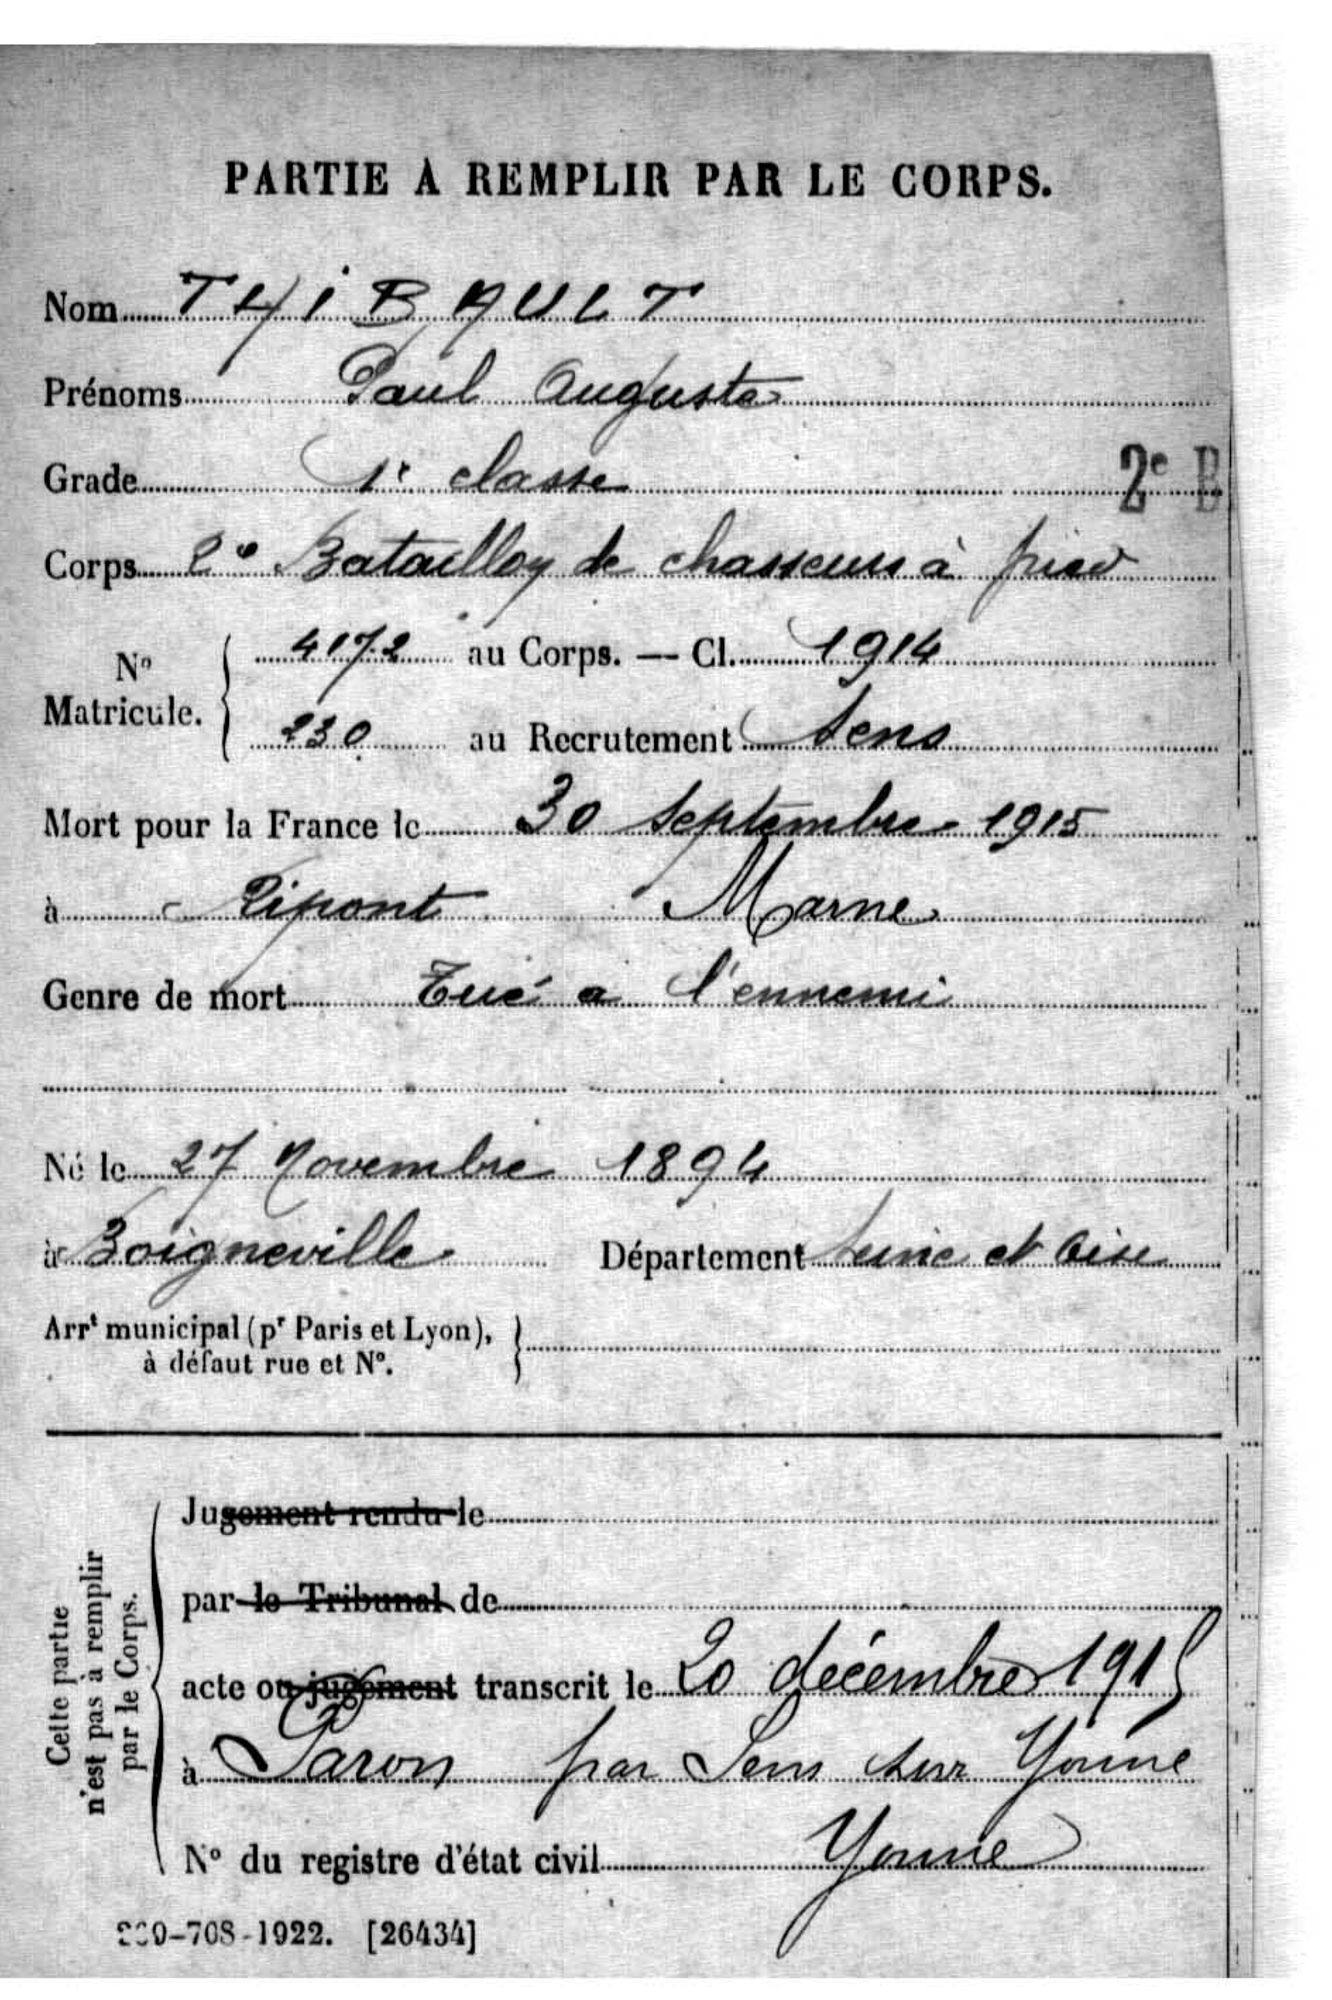 PARTIE À REMPLIR PAR LE CORPS.
Nom THIBAULT
Prénoms Paul Auguste
Grade 1e classe
2e B
Corps 2e Bataillon de chasseurs à pied
No Matricule. { 4172 au Corps. — Cl. 1914
230 au Recrutement Sens
Mort pour la France le 30 Septembre 1915
à Ripont Marne
Genre de mort Tué à l'ennemi
Né le 27 Novembre 1894
à Boigneville Département Seine et Oise
Arrt municipal (pr Paris et Lyon),
à défaut rue et No.
Cette partie
n'est pas à remplir
par le Corps.
Jugement rendu le
par le Tribunal de
acte ou jugement transcrit le 20 décembre 1915
à Paron par Sens sur Yonne
No du registre d'état civil Yonne
-708-1922. [26434]